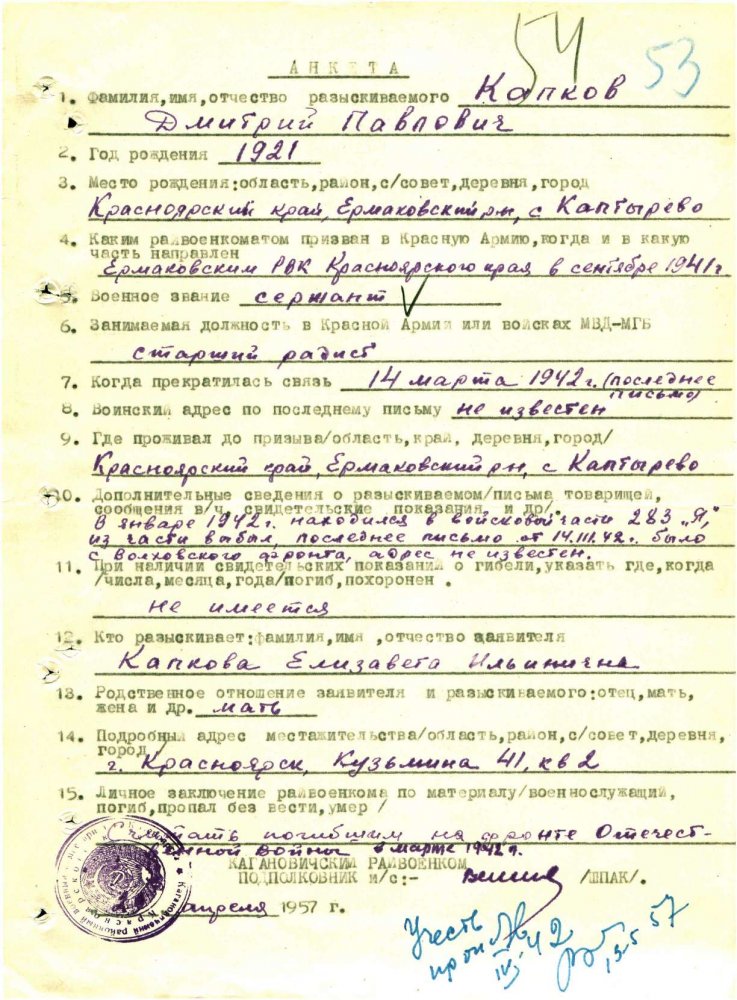 54 53
АНКЕТА
1. Фамилия,имя,отчество разыскиваемого Капков
Дмитрий Павлович
2. Год рождения 1921
3. Место рождения:область,район,с/совет,деревня,город
Красноярский край, Ермаковский рн, с Каптырево
4. Каким райвоенкоматом призван в Красную Армию,когда и в какую
часть направлен
Ермаковским РВК Красноярского края в сентябре 1941 г
5. Военное звание сержант
6. Занимаемая должность в Красной Армии или войсках МВД-МГБ
старший радист
7. Когда прекратилась связь 14 марта 1942 г. (последнее
письмо)
8. Воинский адрес по последнему письму не известен
9. Где проживал до призыва/область,край, деревня,город/
Красноярский край, Ермаковский рн, с Каптырево
10. Дополнительные сведения о разыскиваемом/письма товарищей,
сообщения в/ч, свидетельские показания, и др/.
В январе 1942 г. находился в войсковой части 283 "Я",
из части выбыл, последнее письмо от 14.III.42г. было
с Волховского фронта, адрес не известен.
11. При наличии свидетельских показаний о гибели,указать где,когда
/числа,месяца,года/погиб,похоронен .
не имеется
12. Кто разыскивает:фамилия,имя ,отчество заявителя
Капкова Елизавета Ильинична
13. Родственное отношение заявителя и разыскиваемого:отец,мать,
жена и др. мать
14. Подробный адрес местажительства/область,район,с/совет,деревня,
город/
г. Красноярск, Кузьмина 41, кв 2
15. Личное заключение райвоенкома по материалу/военнослужащий,
погиб,пропал без вести,умер /
погибшим на фронте Отечест-
венной войны в марте 1942 г.
КАГАНОВИЧСКИЙ РАЙВОЕНКОМ
ПОДПОЛКОВНИК м/с:- /ШПАК/.
апреля 1957 г.
Учесть
проп IV 42
13.5 57